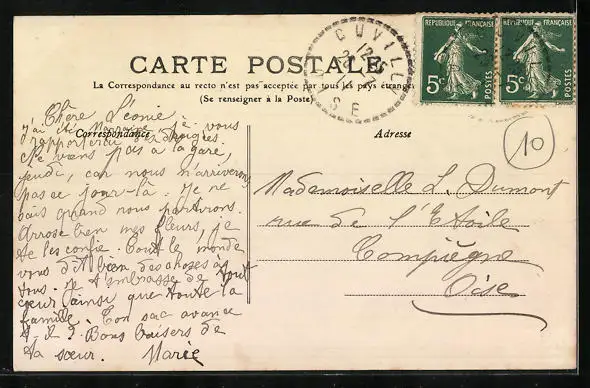 CARTE POSTALE
La Correspondance au recto n'est pas acceptée par tous les pays étrangers
(Se renseigner à la Poste)
CUVILL
12
SE
RÉPUBLIQUE FRANÇAISE
5c
POSTES
RÉPUBLIQUE FRANÇAISE
5c
POSTES
10
Correspondance
Adresse
Chère Léonie
j'ai été je vous
rapporterai des bougies.
Ne viens pas à la gare,
jeudi, car nous n'arriverons
pas ce jour-là. Je ne
sais quand nous partirons.
Arrose bien mes fleurs, je
te les confie. Tout le monde
vous dit bien des choses à
tous. Je t'embrasse de tout
cœur ainsi que toute la
famille. Ton sac avance
t-il? Bons baisers de
ta sœur. Marie
Mademoiselle L. Dumont
rue de l'Etoile
Compiègne
Oise